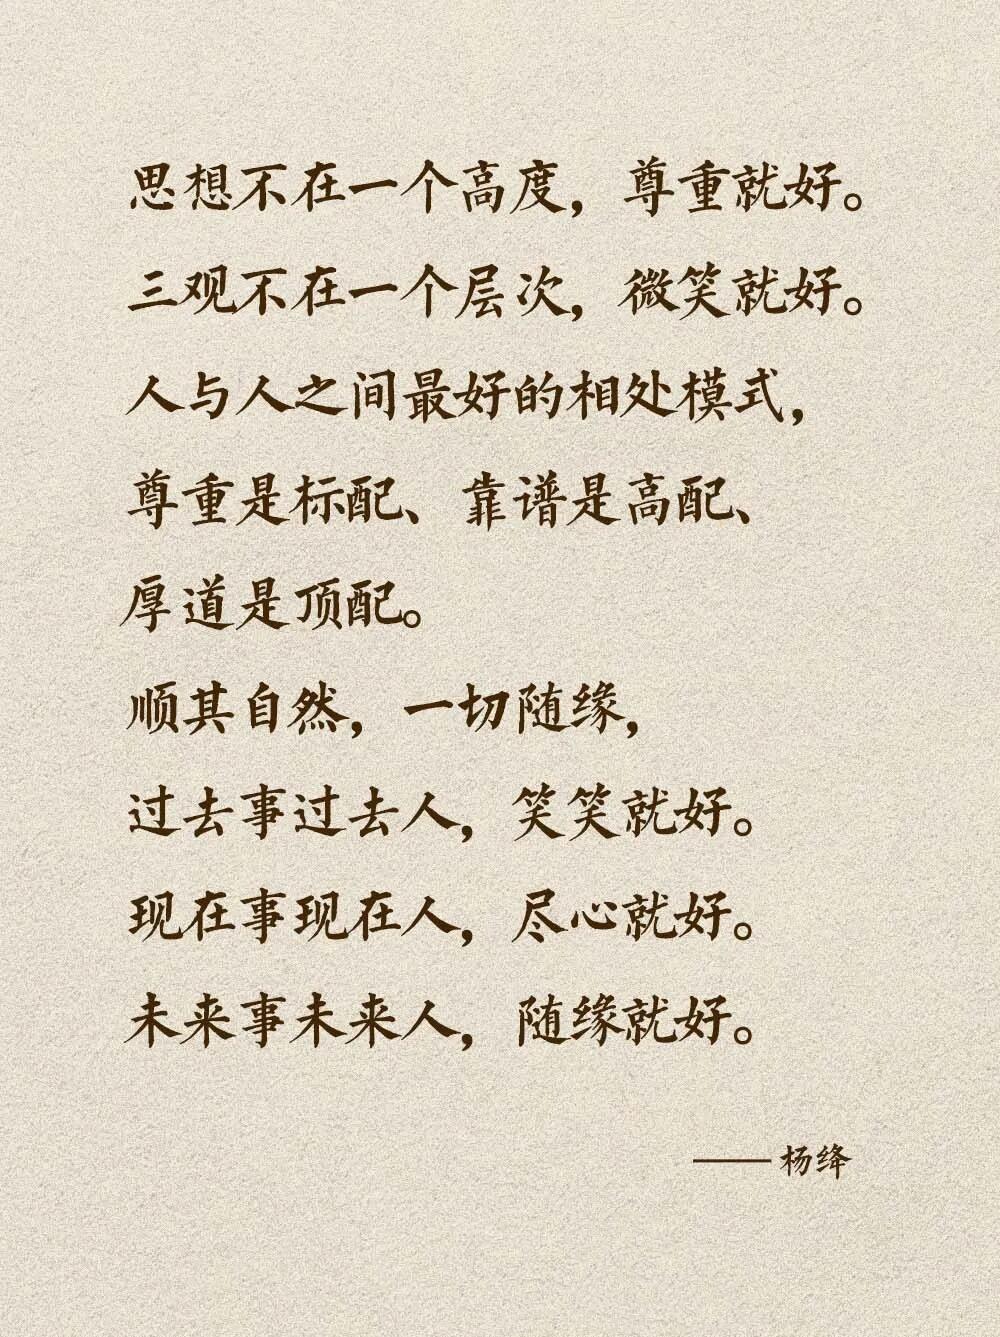 思想不在一个高度，尊重就好。
三观不在一个层次，微笑就好。
人与人之间最好的相处模式，
尊重是标配、靠谱是高配、
厚道是顶配。
顺其自然，一切随缘，
过去事过去人，笑笑就好。
现在事现在人，尽心就好。
未来事未来人，随缘就好。
——杨绛